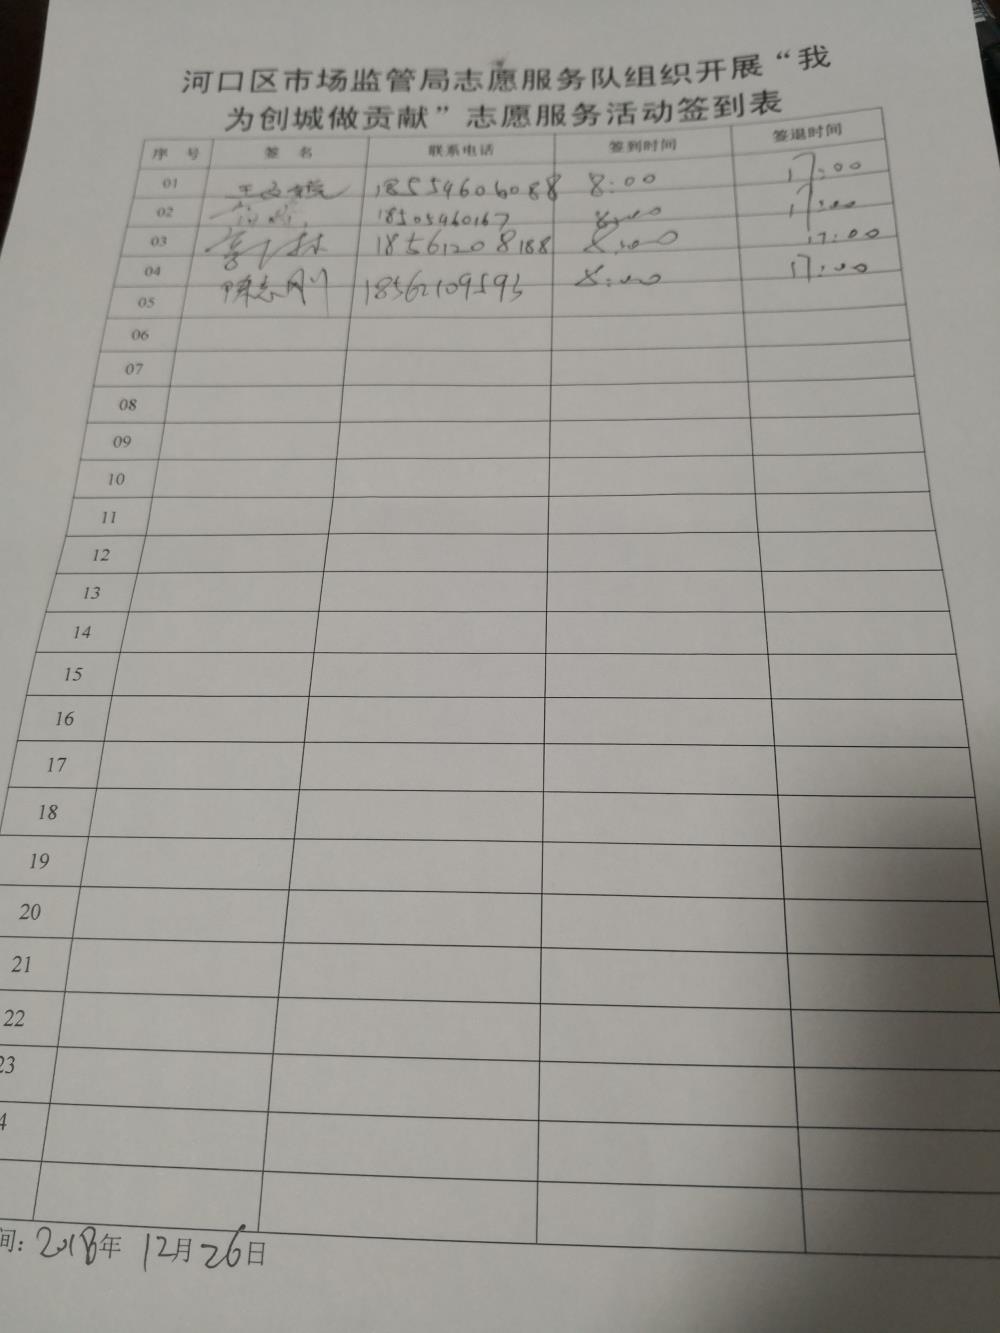 河口区市场监管局志愿服务队组织开展“我
为创城做贡献”志愿服务活动签到表
序 号 签 名 联系电话 签到时间 签退时间
01 18554606088 8:00 17:00
02 18505460167 8:00 17:00
03 18561208188 8:00 17:00
04 陈志刚 18562109593 8:00 17:00
05
06
07
08
09
10
11
12
13
14
15
16
17
18
19
20
21
22
23
4
间: 2018年 12月26日